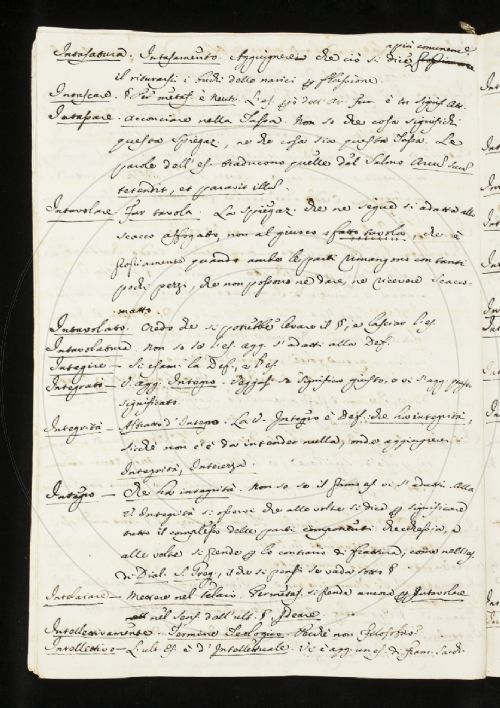 Intasatura. Intasamento. Aggiugnerei che ciò si dice più comunem.e
il riturarsi i buchi delle narici flussione.
Intascare. Per metaf. è Neut. L'es.
Intassare. Acconciare nella Tassa. Non so che cosa significhi
questa spiegaz., ne che cosa sia questa Tassa. Le
parole dell'es. traducono quelle del Salmo Arcum suum
tetendit, et paravit illum.
Intavolare. Far tavola. La spiegaz. che ne segue si adatta allo
scacco affogato, non al giuoco fatto tavola, che è
quando ambe le parti rimangono con tanti
pochi pezzi, che non possono ne dare, ne ricevere scacco
matto.
Intavolato. Credo che si potrebbe levare il §, e lasciar l'es.
Intavolatura. Non so se l'es. agg. si adatti alla Def.
Integire — Si esami. la Def., e l'es.
Integrati — V. agg. Integro. significa giusto, e vi s'agg. questo
significato.
Integrità — Astratto d'Integro. La V. Integro è Def. che ha integrità,
sicchè non c'è da intender nulla, onde aggiugnerei
Integrità, Interezza.
Integro — Che ha integrità. Non so se il primo es. vi si adatti. Alla
V. Integrità si osservi che alle volte si dice significando
tutto il complesso delle parti componenti checchessia, e
alle volte si prende lo contrario di frattura, come nell'es.
di Dial. S. Greg., il che si pensi se vada sotto §.
Intelaiare — Mettere nel telaio. si prende ancora Intavolare
nel sens. dell'ult. § Ideare.
Intellettivamente. Termine Teologico. Perchè non Filosofico?
Intellettivo — L'ult. es. è d'Intellettuale. Vi è agg. un es. di Franc. Sacch.